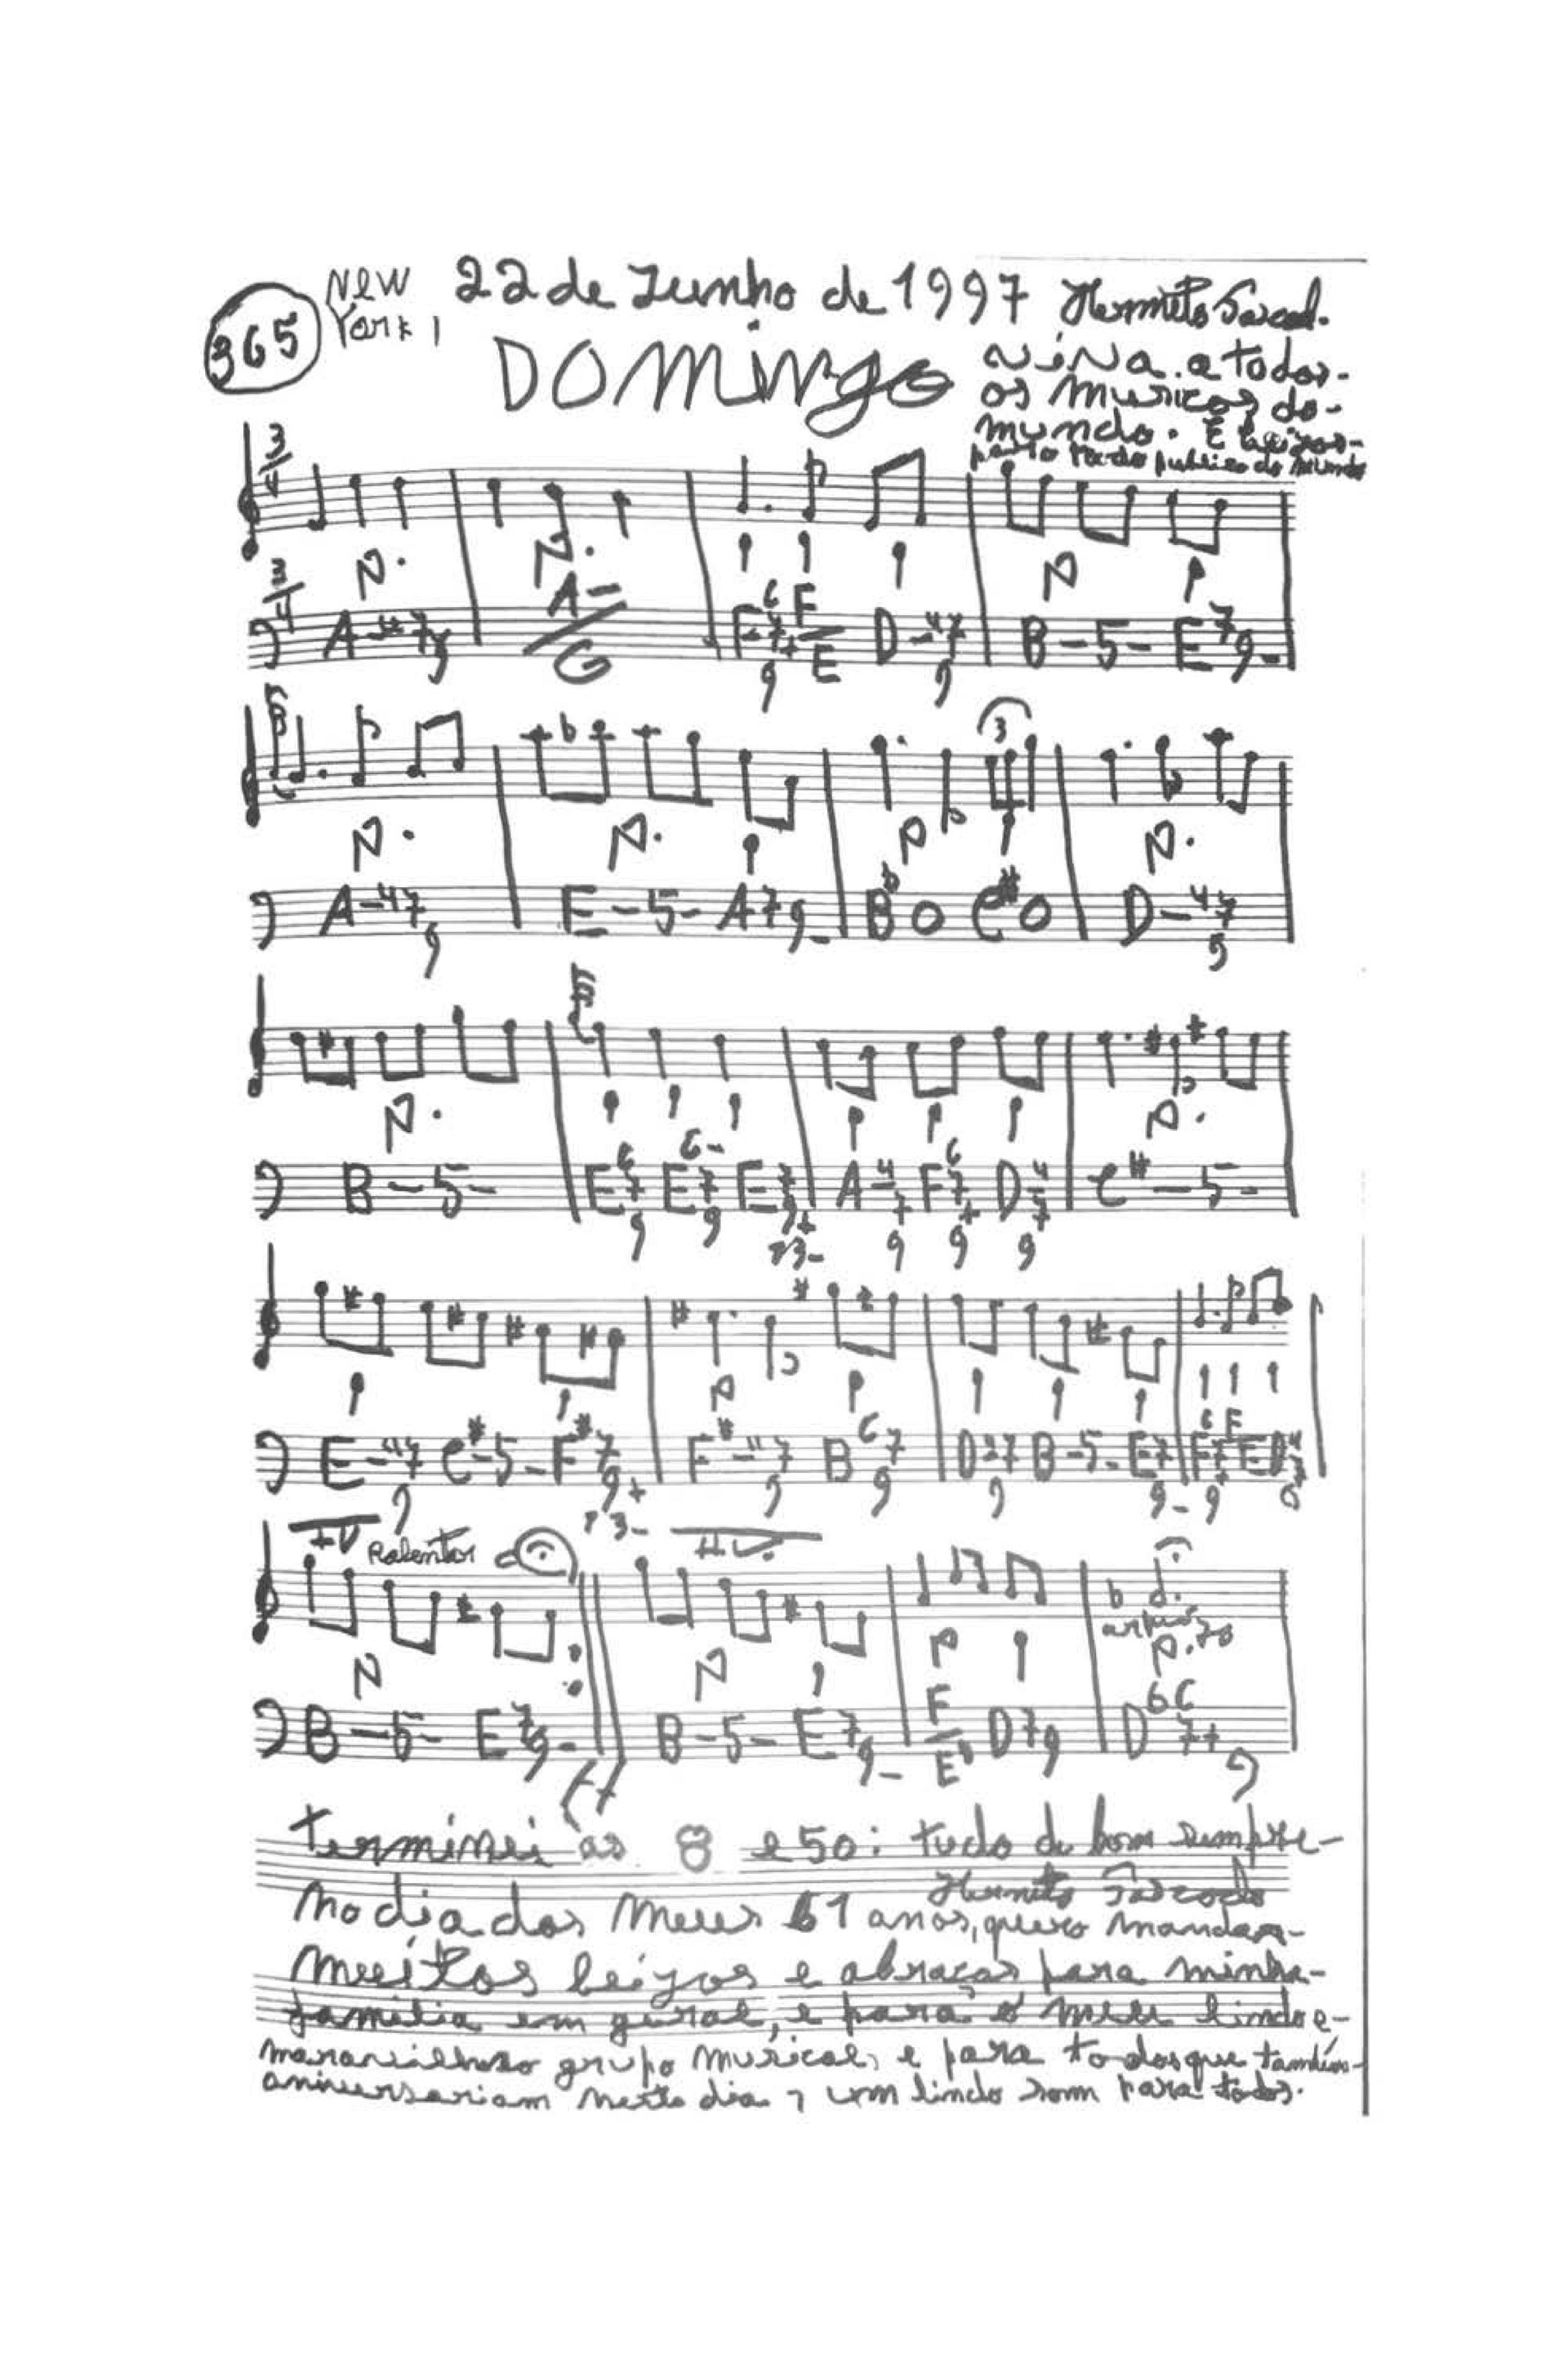 365
New
York 1
22 de Junho de 1997
Hermeto Pascoal.
DOMingo
NiNa. a todos-
os Musicos do-
mundo. E beijos-
para todo publico do mundo
3/4
3/4
A-47 9
A-/G
F 6 7+ 9
F/E
D-47 9
B-5-
E79-
A-47 9
E-5-
A79-
Bbo
C#o
D-47 9
3
B-5-
E 6 7 9
E 6- 7 9
E 7 9+ 13-
A-4 7 9
F 6 7+ 9
D-4 7 9
C#-5-
E-47 9
C#-5-
F#7 9+ 13-
F#-47 9
B 6 7 9
D-47 9
B-5-
E7 9-
F 6 7+ 9
F/E
D-4 7 9
Ralentar
B-5-
E79-
B-5-
E79-
F/Eb
D79
Db 6 7+ 9
terminei às 8 e 50: tudo de bom sempre-
Hermeto Pascoal
No dia dos Meus 61 anos, quero mandar-
Muitos beijos e abraços para minha-
familia em geral, e para o meu lindo e-
maravilhoso grupo Musical, e para todos que também-
aniversariam neste dia, um lindo som para todos.